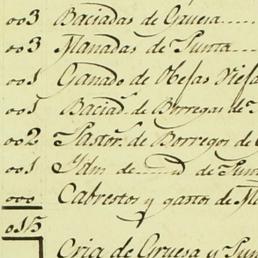 003 Baciadas de Gruesa
003 Manadas de Punta
001 Ganado de Obejas Viejas
001 Baciad. de Borregas de
002 Pastor. de Borregos de
001 Ydm de de Punt
000 Cabrestos y gastos de
015
Cria de Gruesa y Pun